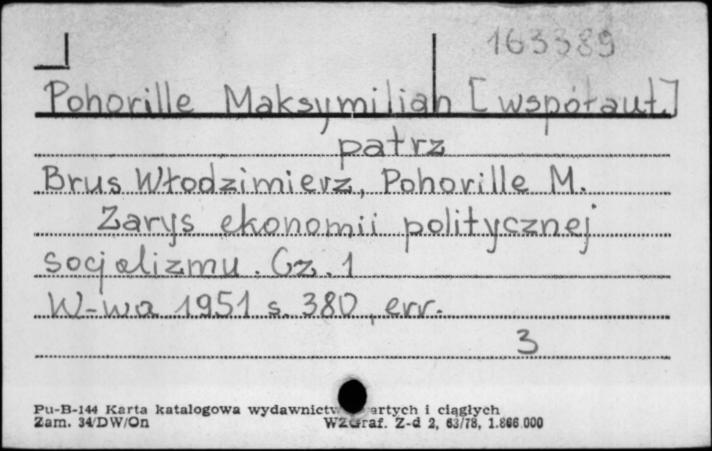 163389
Pohorille Maksymilian [współaut.]
patrz
Brus Włodzimierz, Pohorille M.
Zarys ekonomii politycznej
socjalizmu. Cz. 1
W-wa 1951 s. 380, err.
3
Pu-B-144 Karta katalogowa wydawnictw zwartych i ciągłych
Zam. 34/DW/On WZGraf. Z-d 2, 63/78, 1.866.000